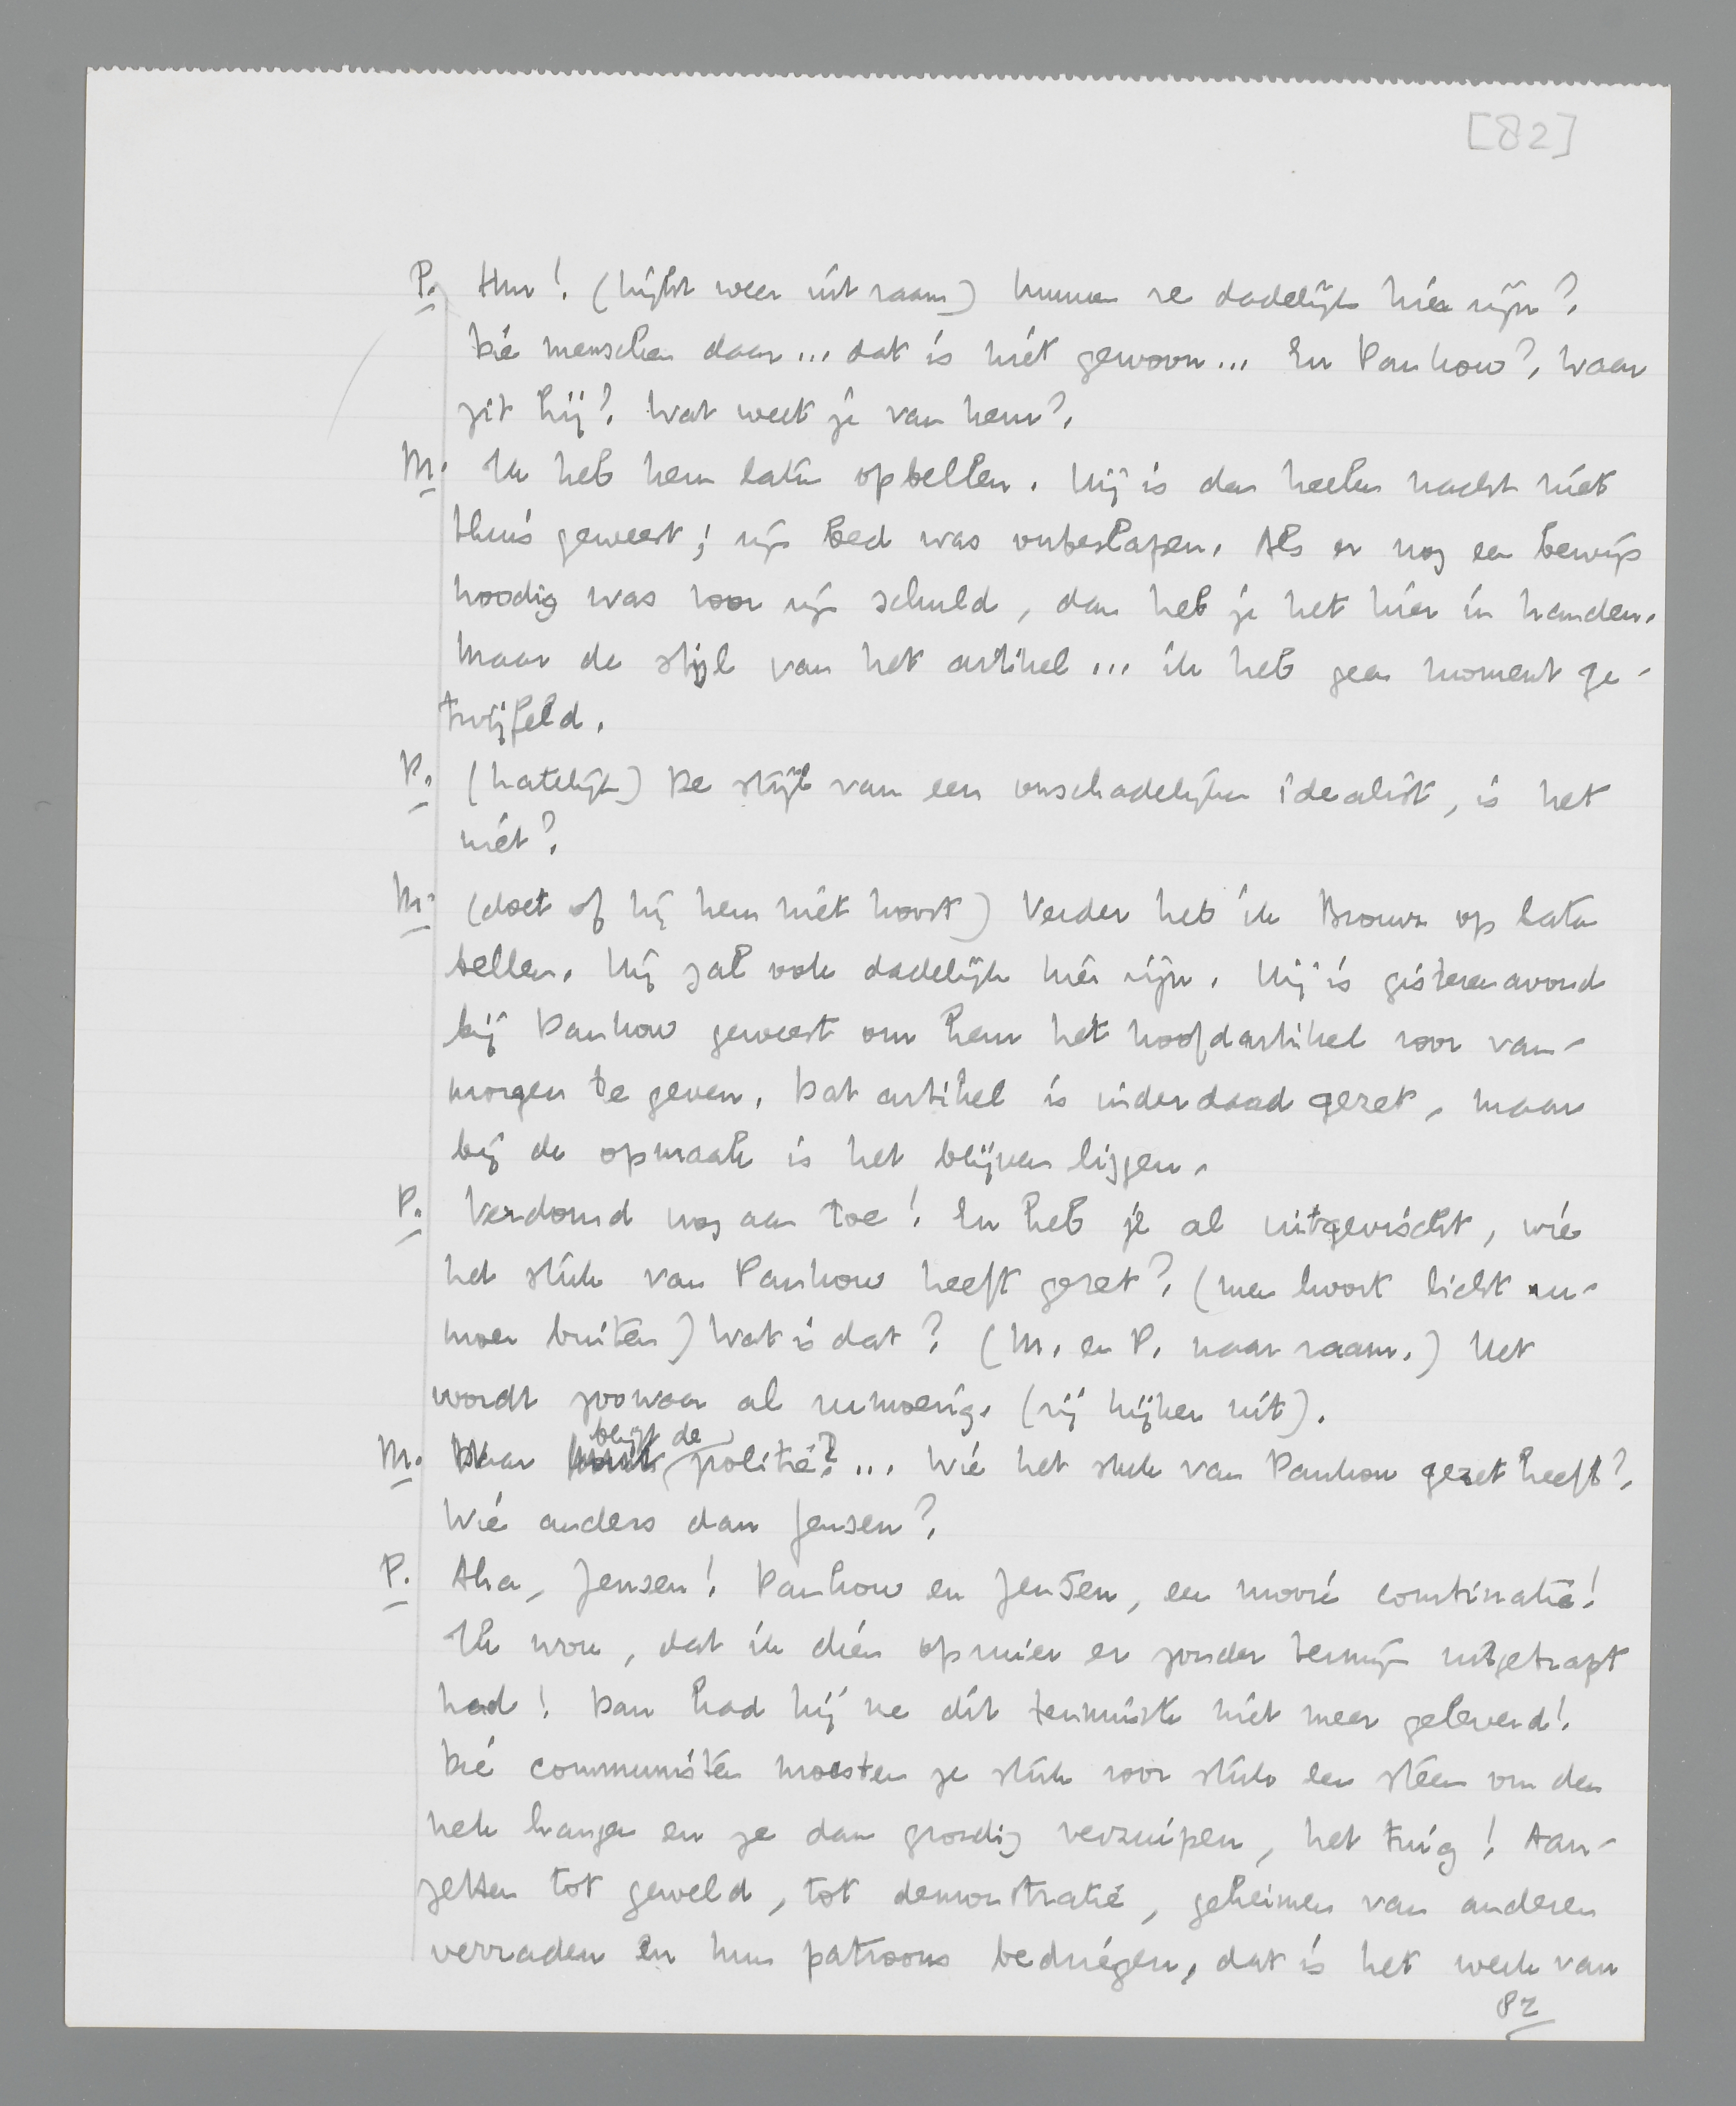 [82]
P. Hm! (kijkt weer uit raam) kunnen ze dadelijk hier zijn?
Die menschen daar... dat is niet gewoon... En Pankow? Waar
zit hij? Wat weet je van hem?
M. Ik heb hem laten opbellen. Hij is den heelen nacht niet
thuis geweest; zijn bed was onbeslapen. Als er nog een bewijs
noodig was voor zijn schuld, dan heb je het hier in handen.
Maar de stijl van het artikel... ik heb geen moment ge-
twijfeld.
P. (hatelijk) De stijl van een onschadelijken idealist, is het
niet?
M. (doet of hij hem niet hoort) Verder heb ik Brouwn op laten
bellen. Hij zal ook dadelijk hier zijn. Hij is gisterenavond
bij Pankow geweest om hem het hoofdartikel voor van-
morgen te geven. Dat artikel is inderdaad gezet, maar
bij de opmaak is het blijven liggen.
P. Verdomd nog aan toe! En heb je al uitgevischt, wie
het stuk van Pankow heeft gezet? (men hoort licht ru-
moer buiten) Wat is dat? (M. en P. naar raam.) Het
wordt zoowaar al rumoerig. (zij kijken uit).
M. Waar blijft de politie? ... Wie het stuk van Pankow gezet heeft?
Wie anders dan Jensen?
P. Aha, Jensen! Pankow en Jensen, een mooie combinatie!
Ik wou, dat ik dien opruier er zonder termijn uitgetrapt
had! Dan had hij me dit tenminste niet meer geleverd!
Die communisten moesten ze stuk voor stuk een steen om den
nek hangen en ze dan grondig verzuipen, het tuig! Aan-
zetten tot geweld, tot demonstratie, geheimen van anderen
verraden en hun patroons bedriegen, dat is het werk van
82